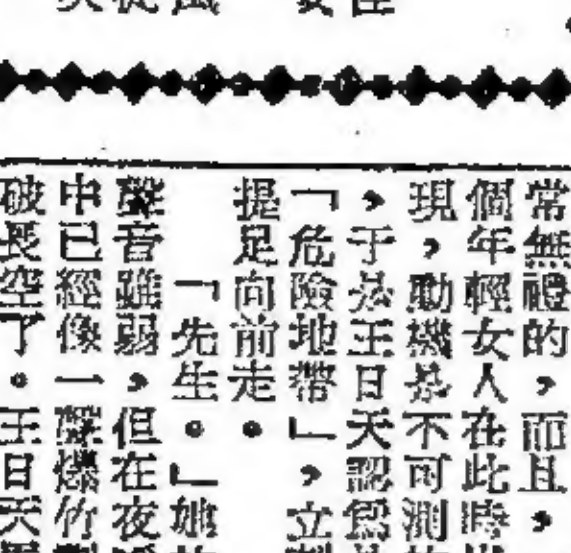 常無禮的，而且，
個年輕女人在此時
現，動機是不可測
，于是王日天認爲
「危險地帶」，立
提足向前走。
「先生。」她
聲音雖弱，但在夜
中已經像一聲爆竹
破長空了。王日天